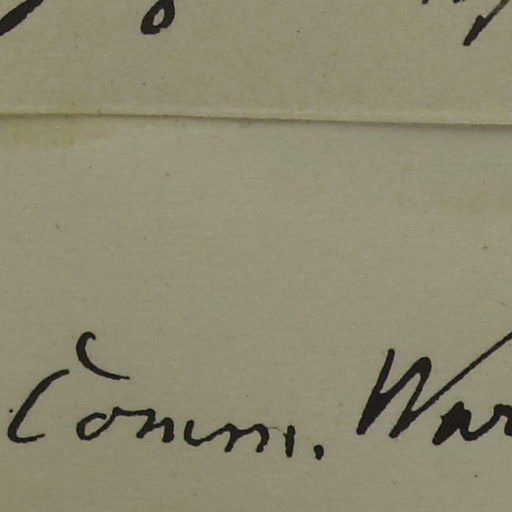 Comm. War